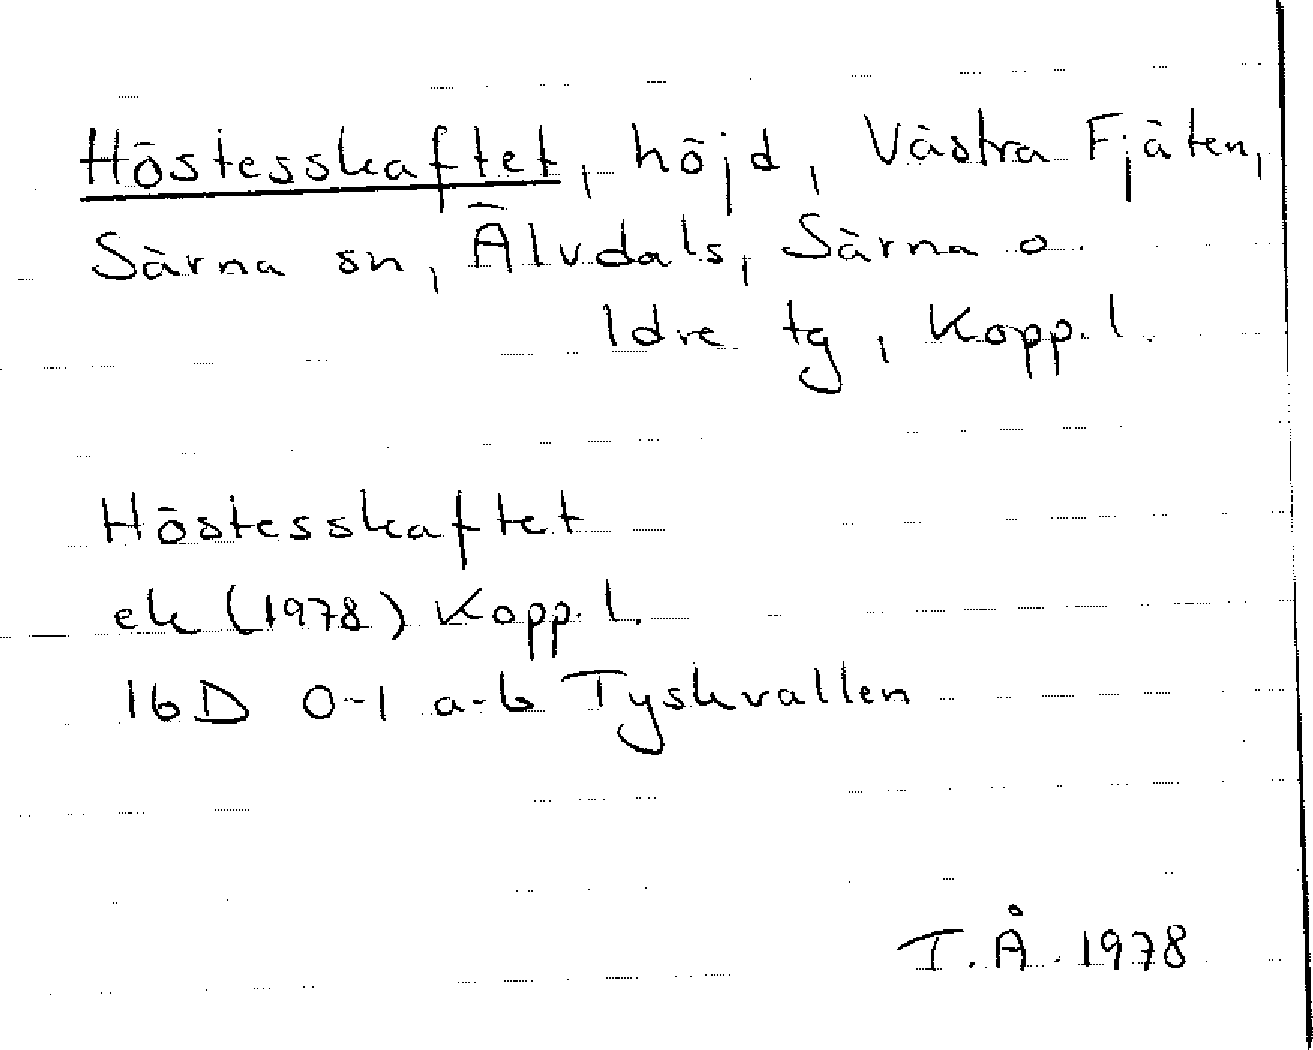 Höstesskaftet, höjd, Västra Fjäten,
Särna sn, Älvdals, Särna o.
Idre tg, Kopp. l.
Höstesskaftet
ek (1978) Kopp. l.
16D 0-1 a-b Tyskvallen
T. Å. 1978